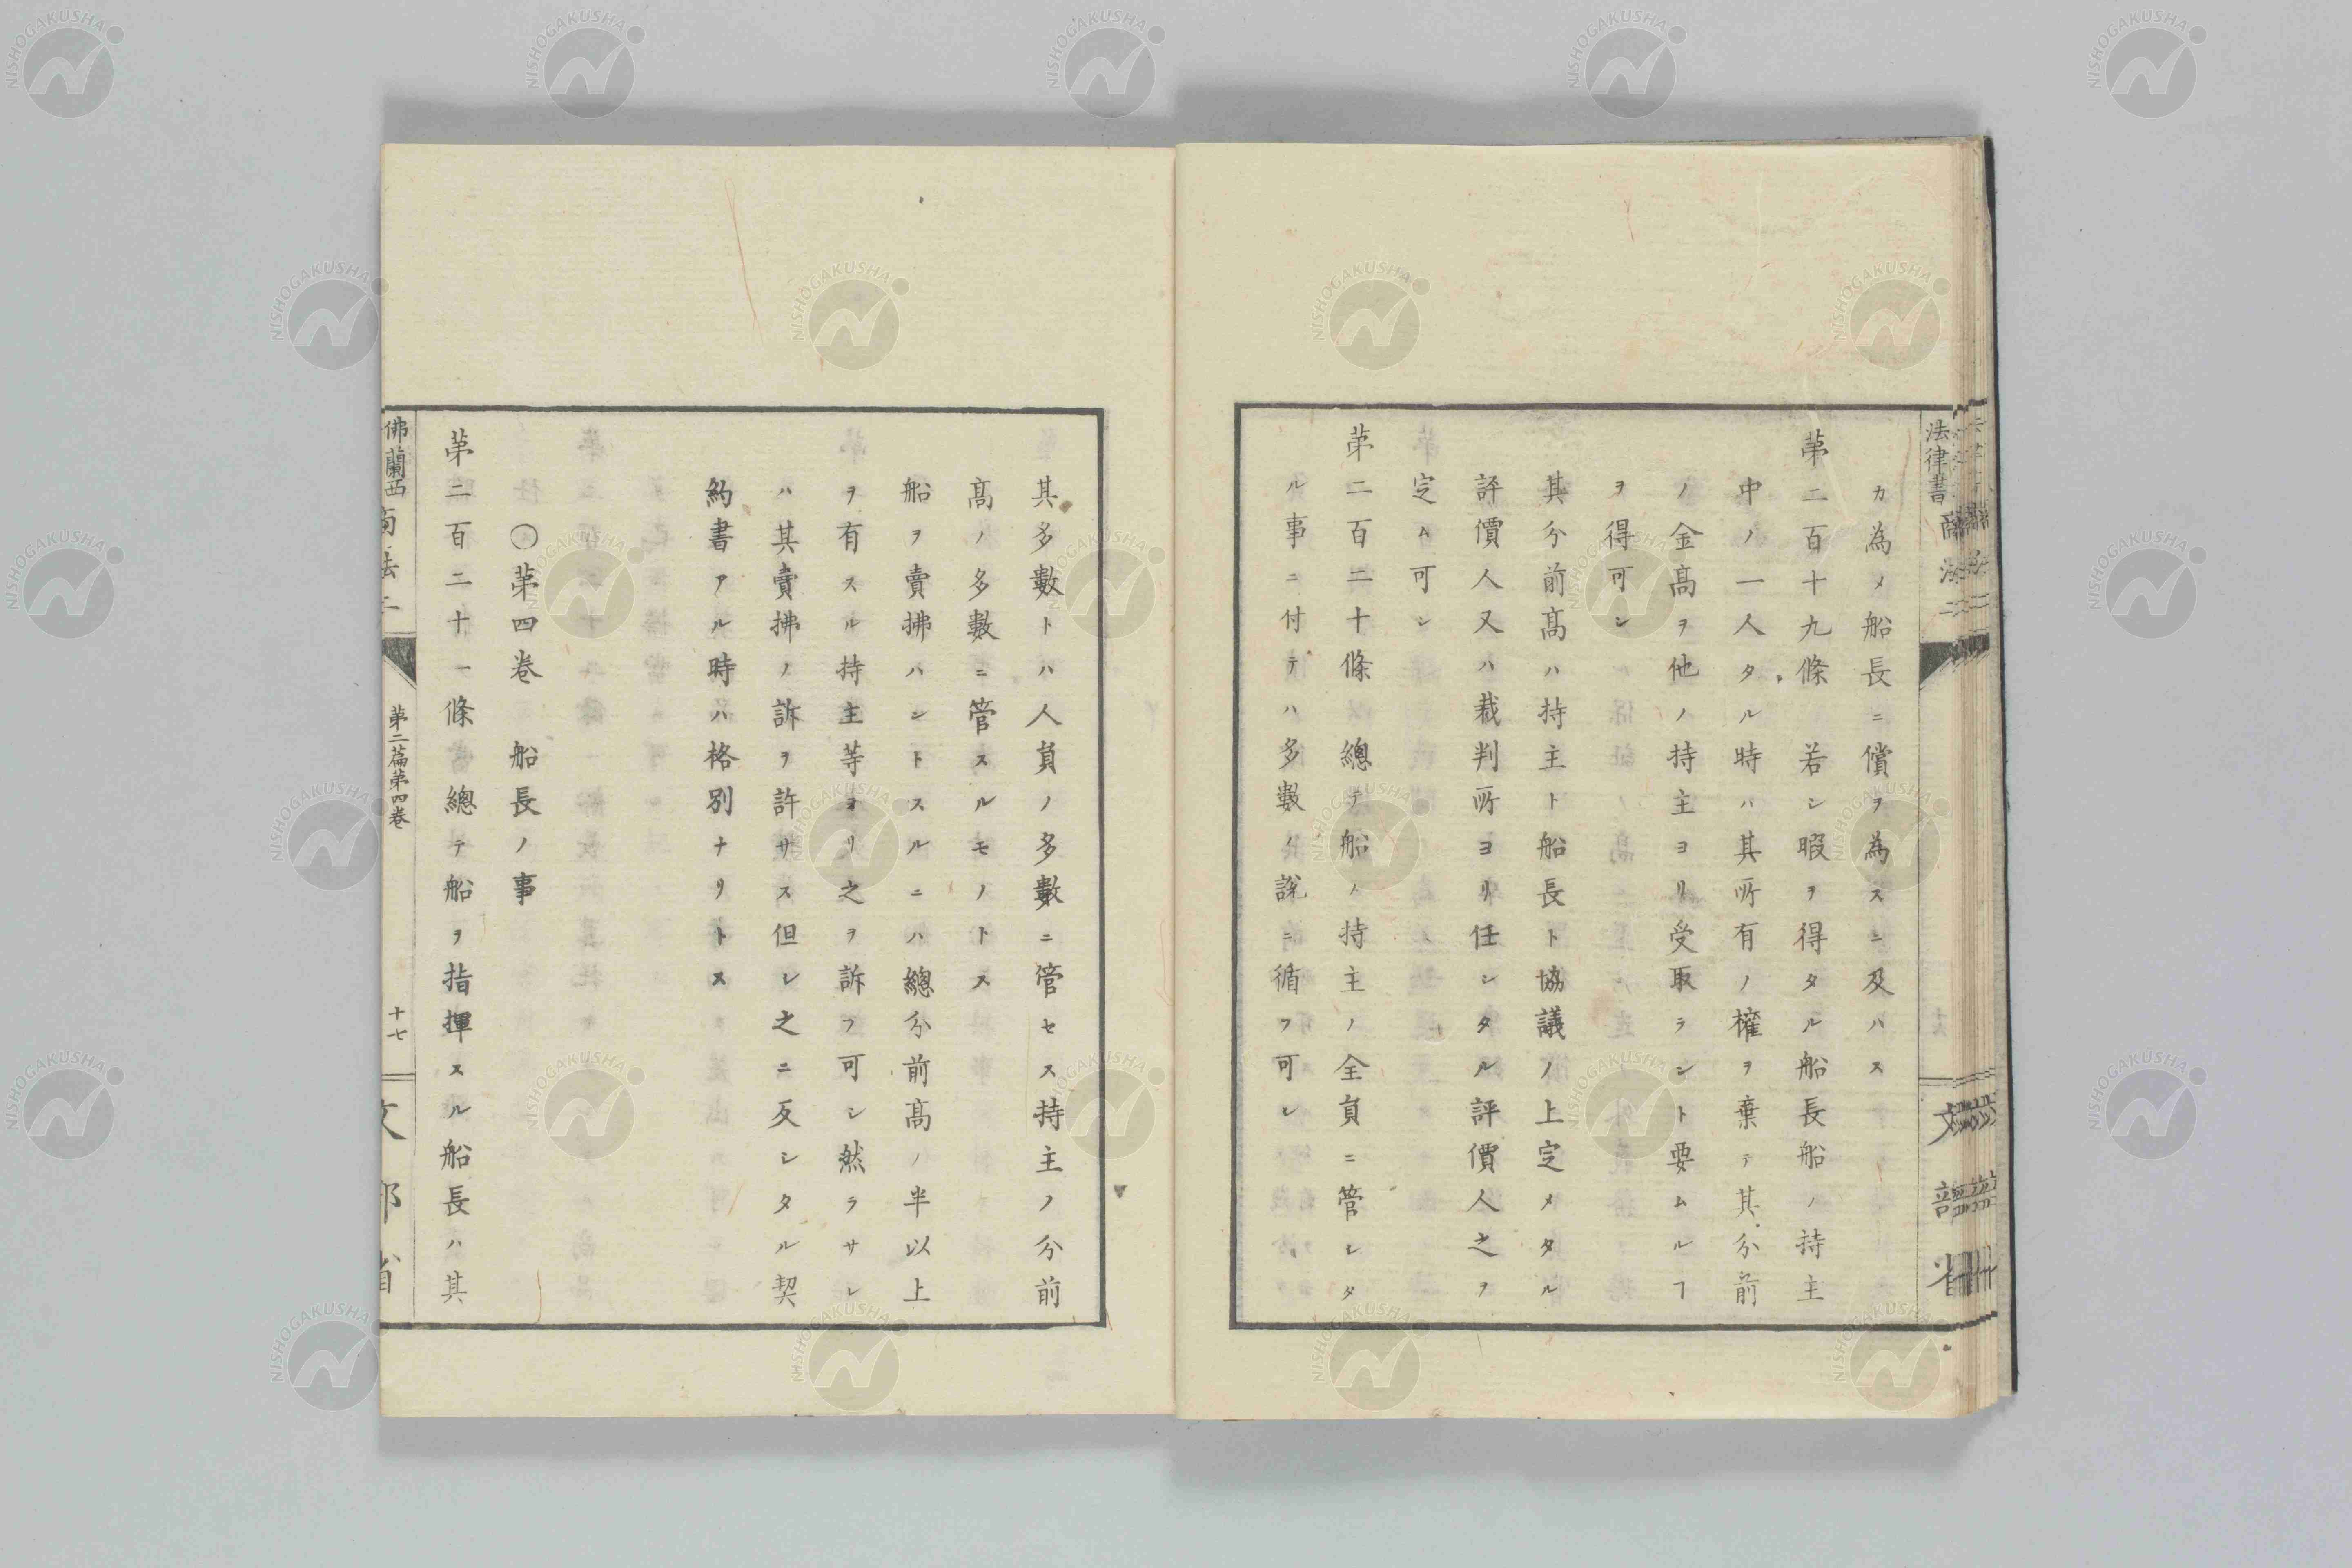 法律書 商法二
文部省
カ為メ船長ニ償ヲ為スニ及ハス
苐二百十九條 若シ暇ヲ得タル船長船ノ持主
中ノ一人タル時ハ其所有ノ権ヲ棄テ其分前
ノ金髙ヲ他ノ持主ヨリ受取ラント要ムルヿ
ヲ得可シ
其分前髙ハ持主ト船長ト協議ノ上定メタル
評價人又ハ裁判所ヨリ任シタル評價人之ヲ
定ム可シ
苐二百二十條 總テ船ノ持主ノ全員ニ管シタ
ル事ニ付テハ多數ノ説ニ循フ可シ
其多數トハ人員ノ多數ニ管セス持主ノ分前
髙ノ多數ニ管スルモノトス
船ヲ賣拂ハントスルニハ總分前髙ノ半以上
ヲ有スル持主等ヨリ之ヲ訴フ可シ然ラサレ
ハ其賣拂ノ訴ヲ許サス但シ之ニ反シタル契
約書アル時ハ格別ナリトス
○苐四巻 船長ノ事
苐二百二十一條 總テ船ヲ指揮スル船長ハ其
佛蘭西商法二
苐二篇苐四巻
十七
文部省
NISHOGAKUSHA